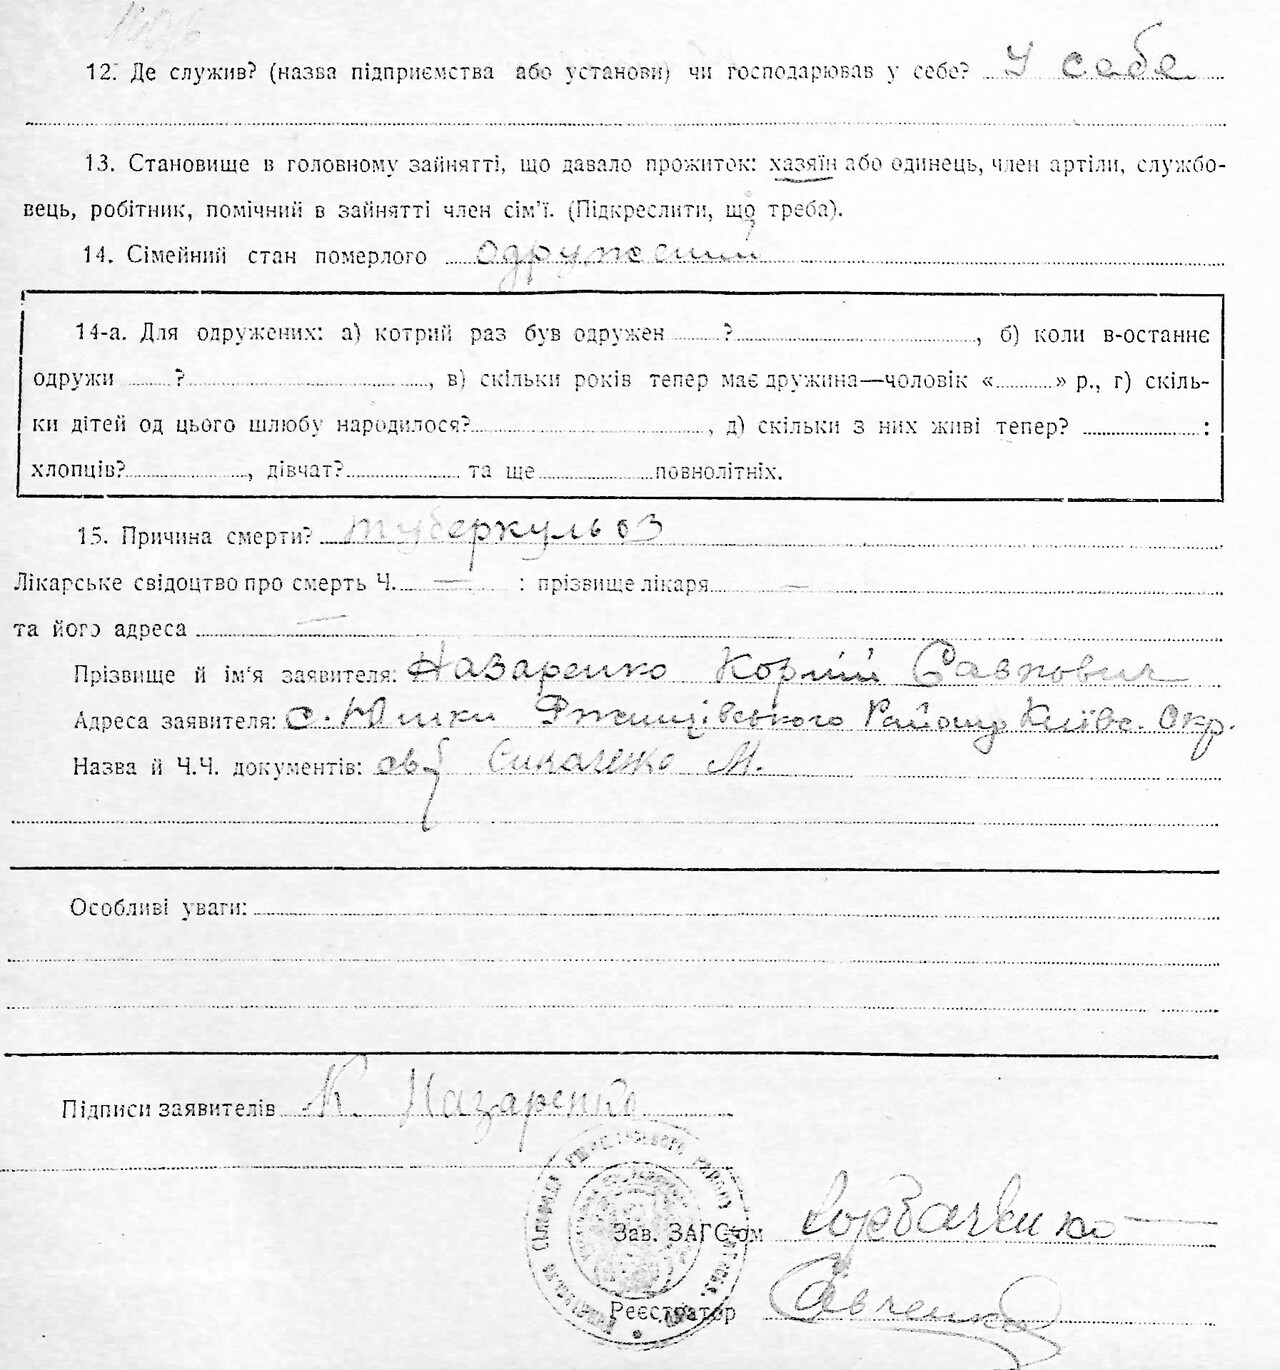 12. Де служив? (назва підприємства або установи) чи господарював у себе? У себе
13. Становище в головному зайнятті, що давало прожиток: хазяїн або одинець, член артіли, службо-
вець, робітник, помічний в зайнятті член сім'ї. (Підкреслити, що треба).
14. Сімейний стан померлого одружений
14-а. Для одружених: а) котрий раз був одружен ? , б) коли в-останнє
одружи ? , в) скільки років тепер має дружина—чоловік « » р., г) скіль-
ки дітей од цього шлюбу народилося? , д) скільки з них живі тепер? :
хлопців? , дівчат? та ще повнолітніх.
15. Причина смерти? туберкульоз
Лікарське свідоцтво про смерть Ч. — : прізвище лікаря —
та його адреса —
Прізвище й ім'я заявителя: Назаренко Корній Савович
Адреса заявителя: с. Юшки Ржищівського Району Київс. Окр.
Назва й Ч.Ч. документів: М.
Особливі уваги:
Підписи заявителів К. Назаренко
Зав. ЗАГС'ом
Реєстратор Савченко